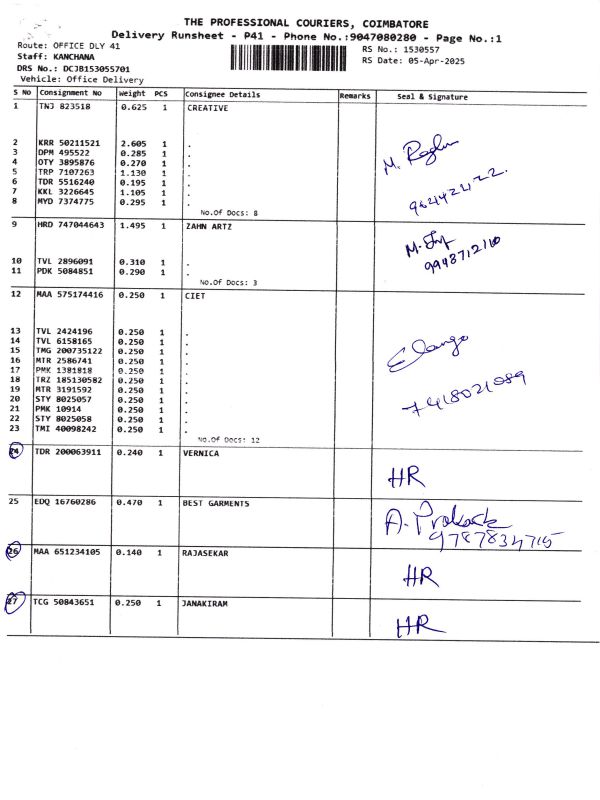 THE PROFESSIONAL COURIERS, COIMBATORE
Delivery Runsheet - P41 - Phone No.:9047080280 - Page No.:1
Route: OFFICE DLY 41
Staff: KANCHANA
DRS No.: DCJB153055701
Vehicle: Office Delivery
RS No.: 1530557
RS Date: 05-Apr-2025
S No Consignment No Weight PCS Consignee Details Remarks Seal & Signature
1 TNJ 823518 0.625 1 CREATIVE
2 KRR 50211521 2.605 1 .
3 DPM 495522 0.285 1 .
4 OTY 3895876 0.270 1 .
5 TRP 7107263 1.130 1 .
6 TDR 5516240 0.195 1 .
7 KKL 3226645 1.105 1 .
8 MYD 7374775 0.295 1 .
No.Of Docs: 8
9 HRD 747044643 1.495 1 ZAHN ARTZ
9948712110
10 TVL 2896091 0.310 1 .
11 PDK 5084851 0.290 1 .
No.Of Docs: 3
12 MAA 575174416 0.250 1 CIET
13 TVL 2424196 0.250 1 .
14 TVL 6158165 0.250 1 .
15 TMG 200735122 0.250 1 .
16 MTR 2586741 0.250 1 .
17 PMK 1381818 0.250 1 .
18 TRZ 185130582 0.250 1 .
19 MTR 3191592 0.250 1 .
20 STY 8025057 0.250 1 .
21 PMK 10914 0.250 1 .
22 STY 8025058 0.250 1 .
23 TMI 40098242 0.250 1 .
Elango
7418021089
No.Of Docs: 12
24 TDR 200063911 0.240 1 VERNICA
HR
25 EDQ 16760286 0.470 1 BEST GARMENTS
A. Prakash
26 MAA 651234105 0.140 1 RAJASEKAR
HR
27 TCG 50843651 0.250 1 JANAKIRAM
HR